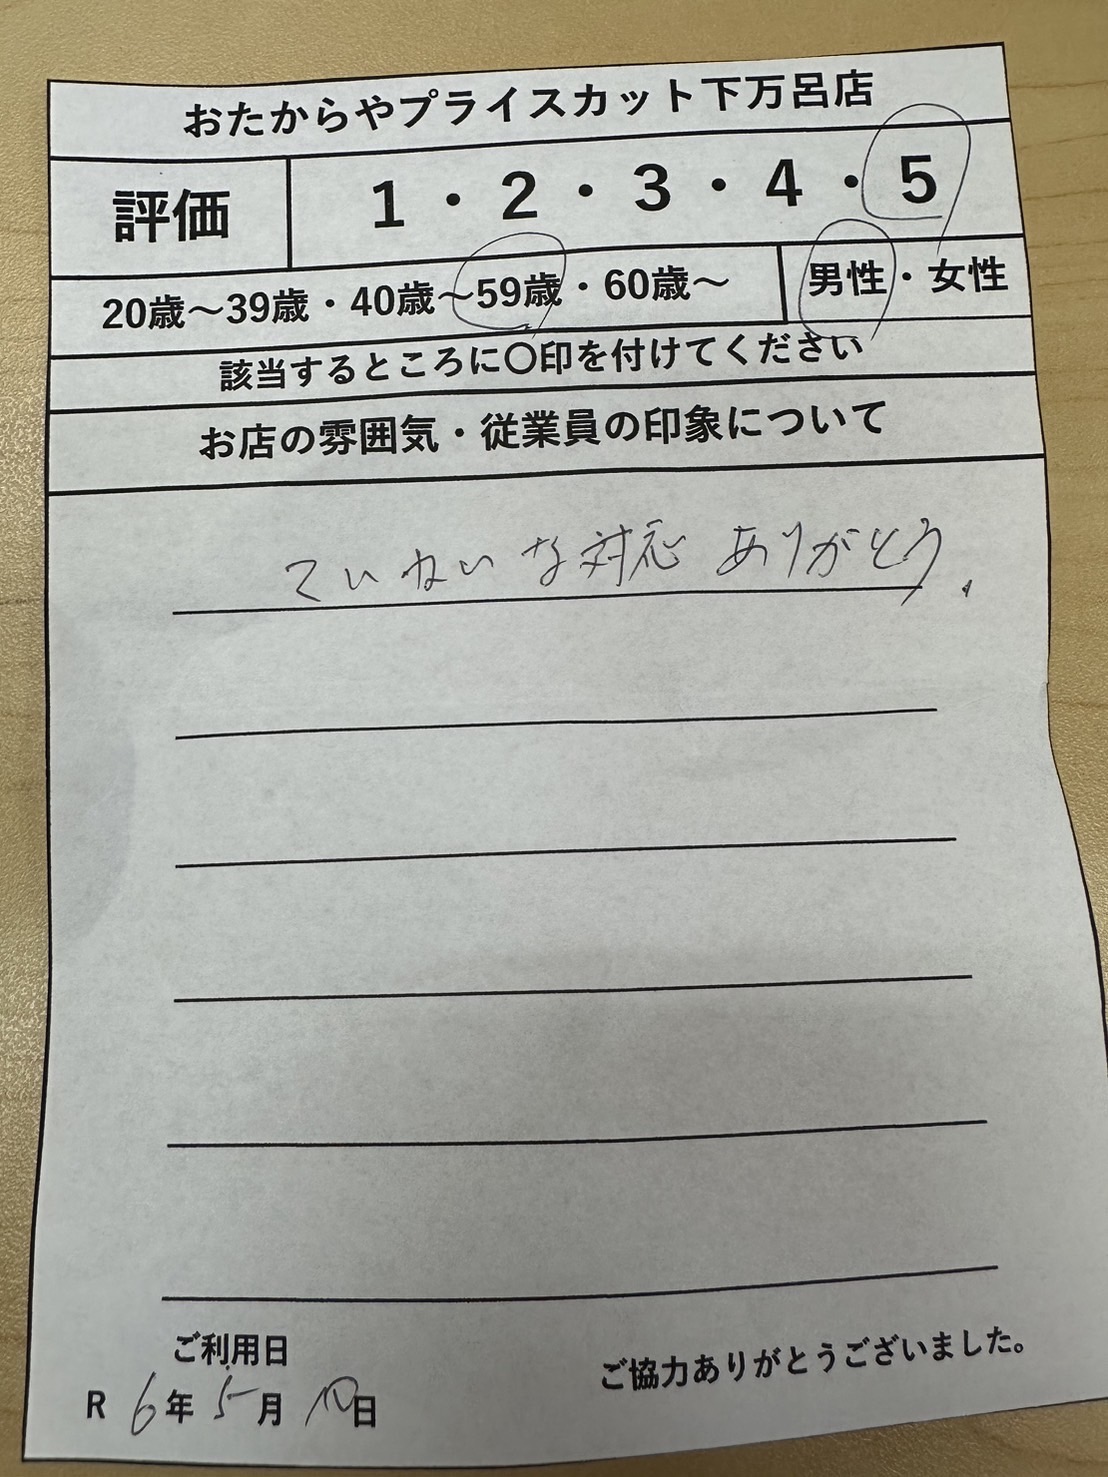 おたからやプライスカット下万呂店
評価 1・2・3・4・5
20歳～39歳・40歳～59歳・60歳～ 男性・女性
該当するところに〇印を付けてください
お店の雰囲気・従業員の印象について
ていねいな対応 ありがとう.
ご利用日
R 6年 5月 10日
ご協力ありがとうございました。